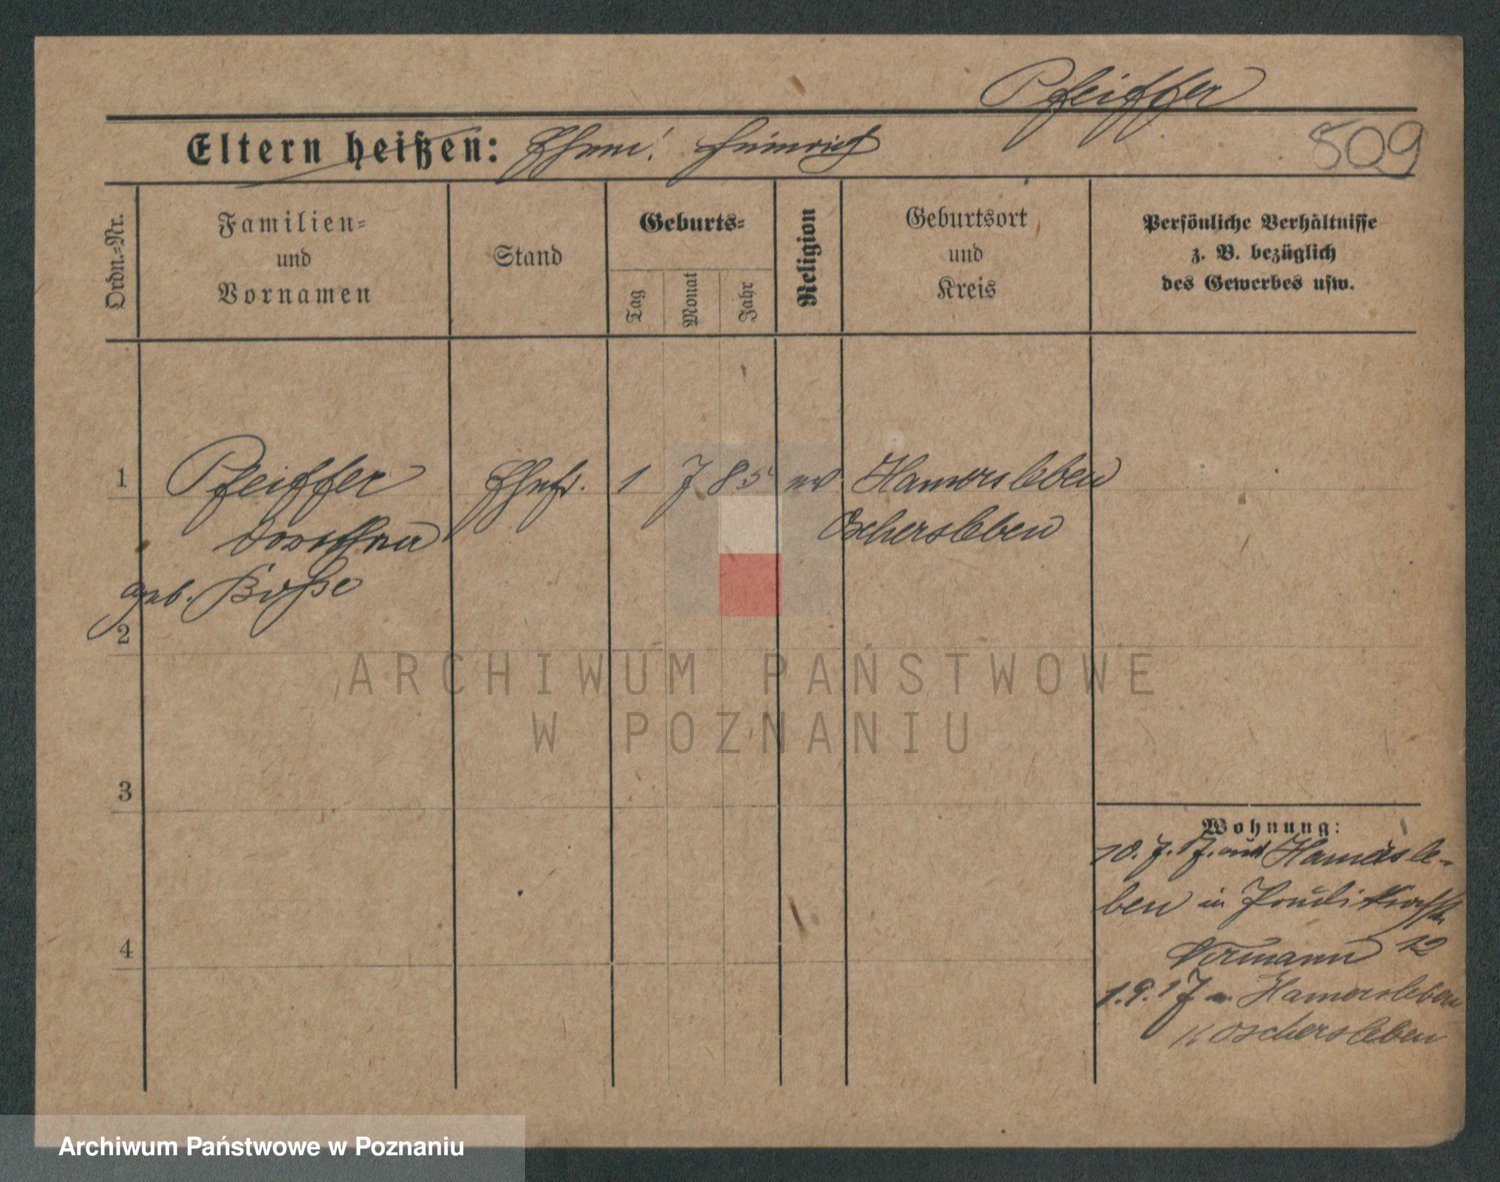 Pfeiffer
Eltern heißen: Ehem: Heinrich
509
Ordn.=Nr.
Familien=
und
Vornamen
Stand
Geburts=
Tag
Monat
Jahr
Religion
Geburtsort
und
Kreis
Persönliche Verhältnisse
z. B. bezüglich
des Gewerbes usw.
1
Pfeiffer Ehefr. 1 7 85 ev Hamersleben
Dorothea Oschersleben
geb. Boße
2
3
4
Wohnung:
10. 7. 17. aus Hamersle-
ben in Paulikirchstr.
12
1. 9. 17 n. Hamersleben
K Oschersleben
ARCHIWUM PAŃSTWOWE
W POZNANIU
Archiwum Państwowe w Poznaniu